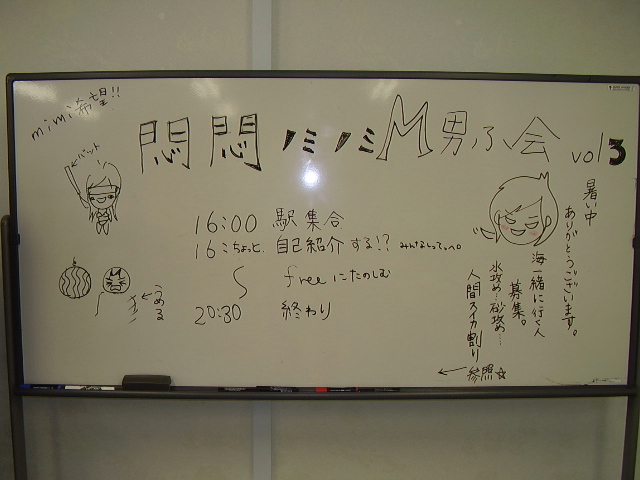 mimi希望!!
悶悶ノミノミM男ふ会 vol3
←バット
16:00 駅集合
16:ちょっと. 自己紹介する!?
free にたのしむ
20:30 終わり
うめる
暑い中
ありがとうございます。
海一緒に行く人
募集。
水攻め…砂攻め…
人間スイカ割り
← 参照☆